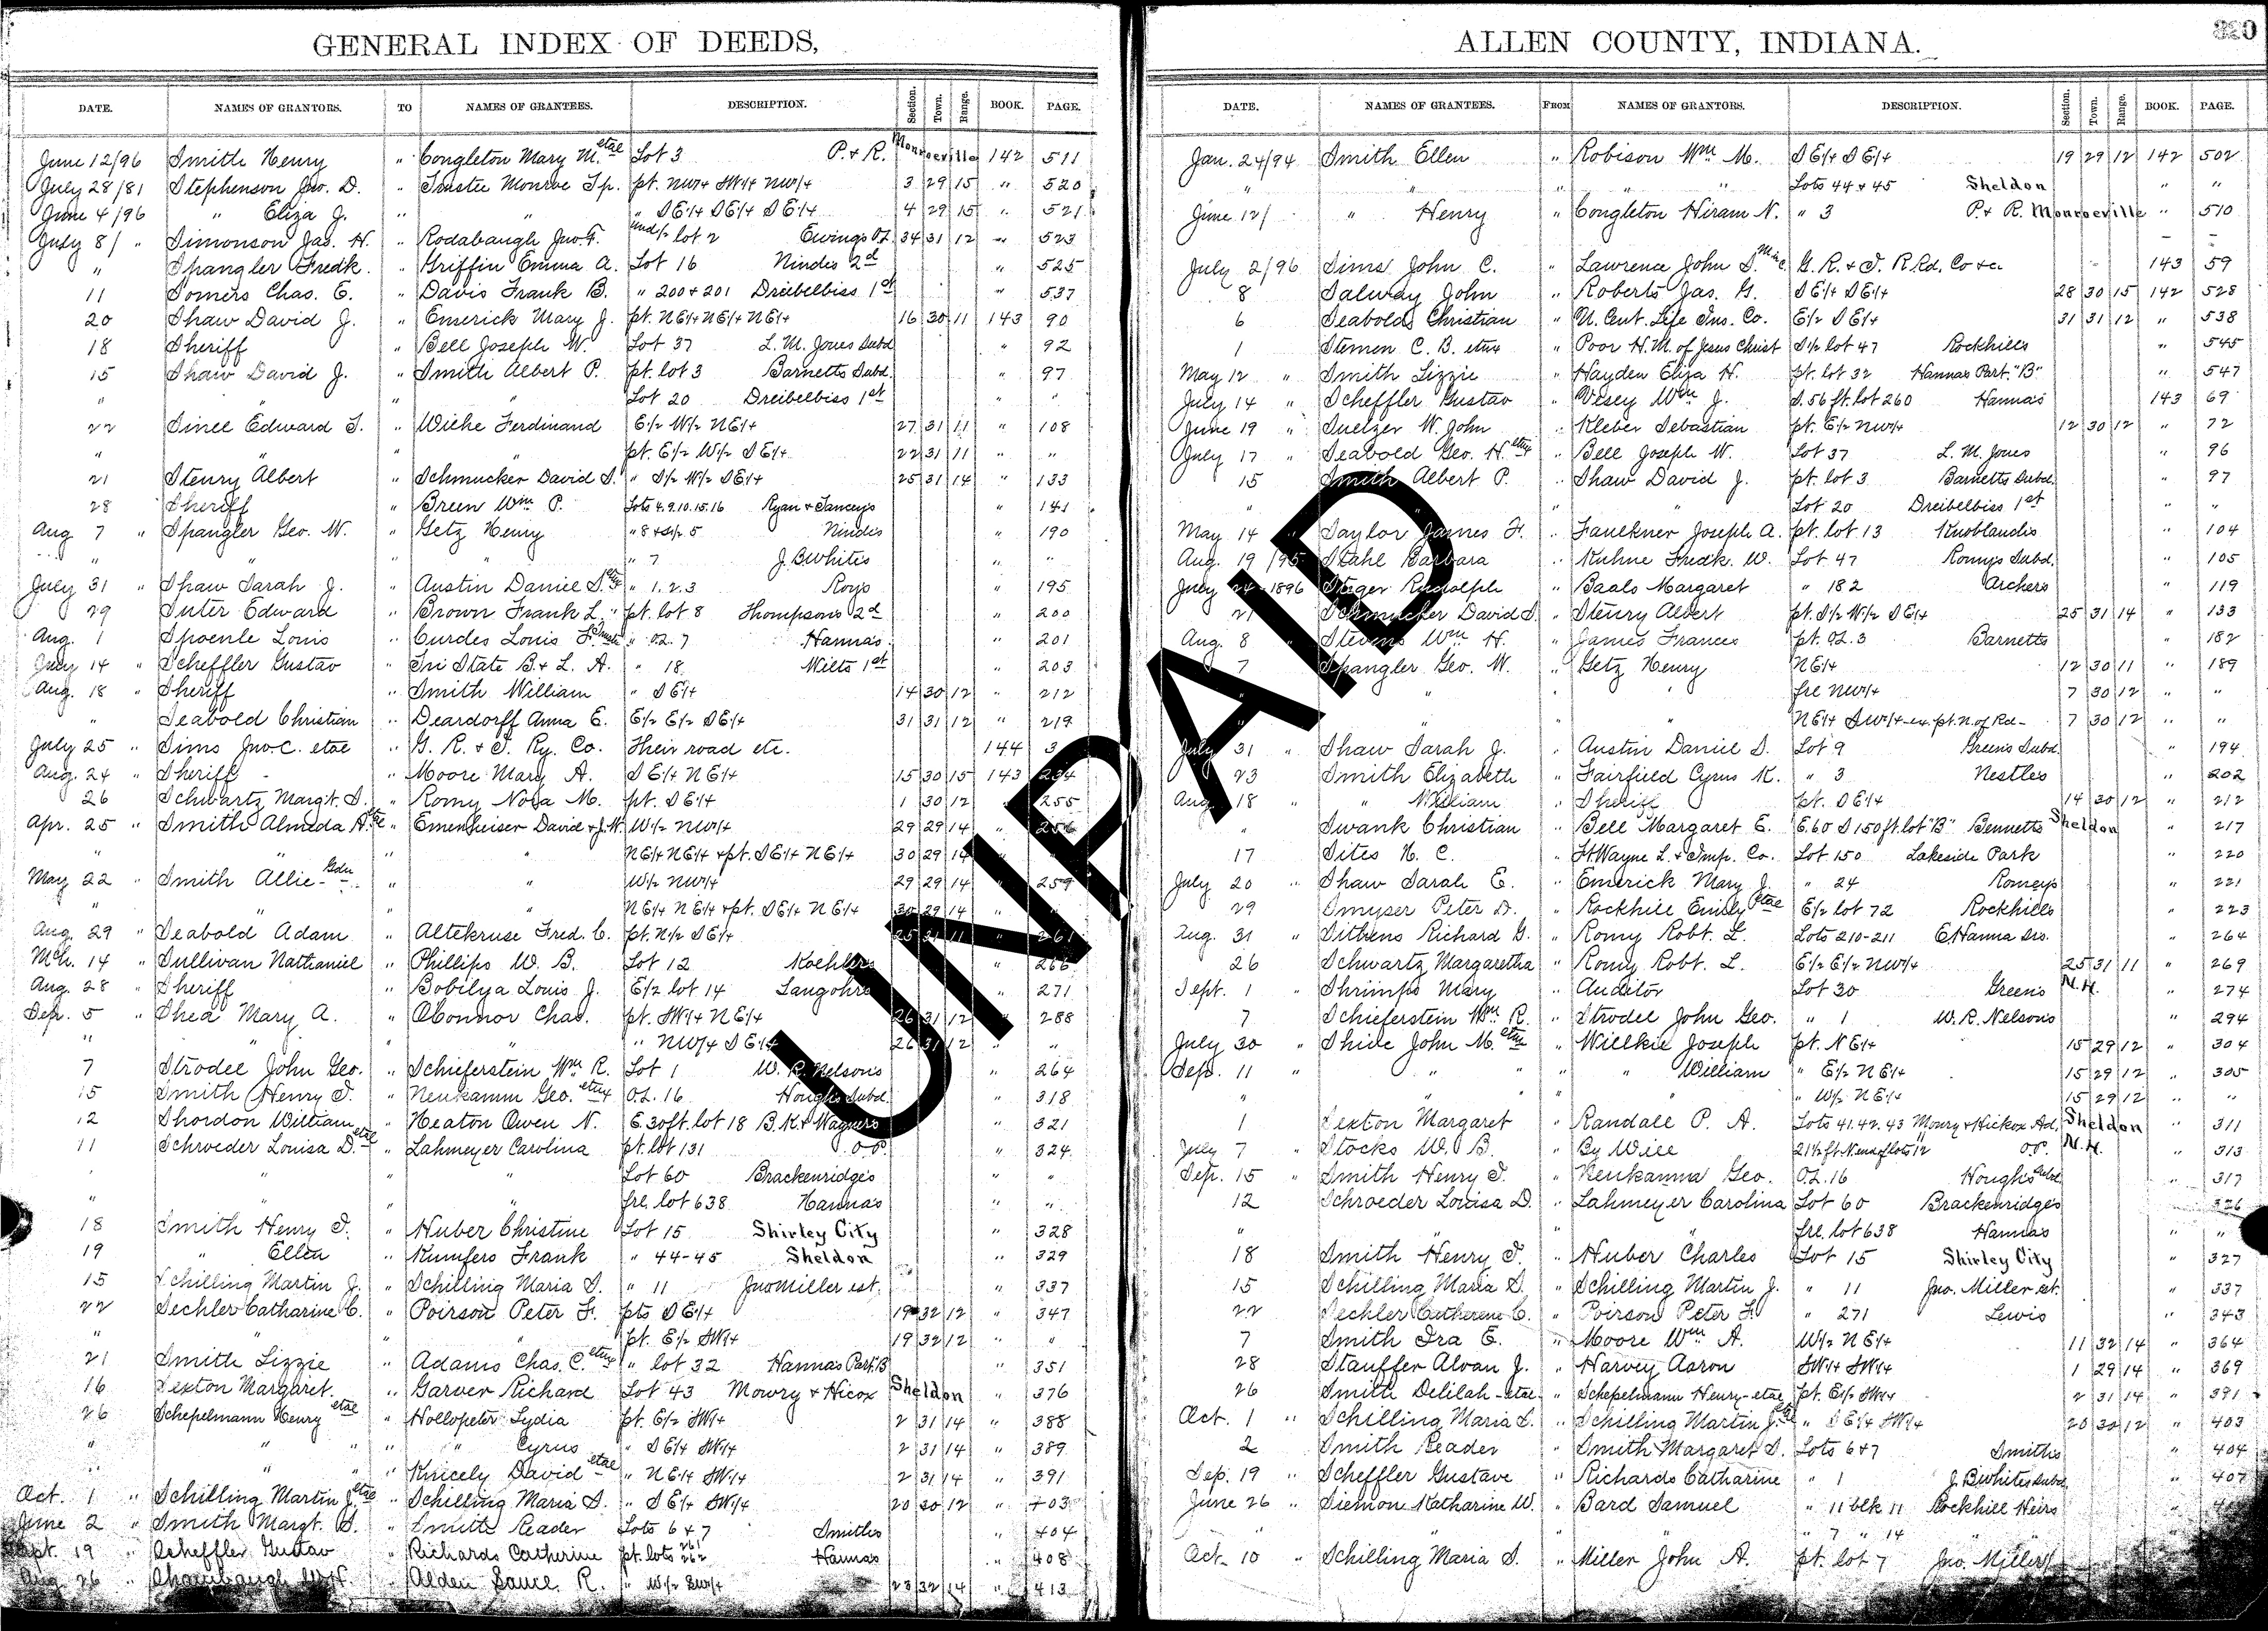 GENERAL INDEX OF DEEDS,
DATE. NAMES OF GRANTORS. TO NAMES OF GRANTEES. DESCRIPTION. Section. Town. Range. BOOK. PAGE.
June 12/96 Smith Henry " Congleton Mary M. etal Lot 3 P. & R. Monroeville 142 511
July 28/81 Stephenson Jno. D. " Trustee Monroe Tp. pt. NW/4 SW/4 NW/4 3 29 15 " 520
June 4/96 " Eliza J. " " " SE/4 SE/4 SE/4 4 29 15 " 521
July 8/ " Simonson Jas. H. " Rodabaugh Jno. F. und/2 lot 2 Ewings O.L. 34 31 12 " 523
" Spangler Fredk. " Griffin Emma A. Lot 16 Nindes 2d " 525
11 Somers Chas. E. " Davis Frank B. " 200 & 201 Dreibelbiss 1st " 537
20 Shaw David J. " Emerick Mary J. pt. NE/4 NE/4 NE/4 16 30 11 143 90
18 Sheriff " Bell Joseph W. Lot 37 L. M. Jones Subd " 92
15 Shaw David J. " Smith Albert P. pt. lot 3 Barnetts Subd. " 97
" " " " Lot 20 Dreibelbiss 1st " "
22 Sinel Edward T. " Wiehe Ferdinand E/2 W/2 NE/4 27 31 11 " 108
" " " pt. E/2 W/2 SE/4 22 31 11 " "
21 Steury Albert " Schmucker David S. " S/2 W/2 SE/4 25 31 14 " 133
28 Sheriff " Breen Wm. P. Lots 4.9.10.15.16 Ryan & Janceys " 141
Aug 7 " Spangler Geo. W. " Getz Henry " 8 & S/2 5 Nindes " 190
" " " " " 7 J. B. Whites " "
July 31 " Shaw Sarah J. " Austin Daniel S. etal " 1. 2. 3 Roys " 195
29 Suter Edward " Brown Frank L. " pt. lot 8 Thompson's 2d " 200
Aug. 1 Spoenle Louis " Curdes Louis F. " O.L. 7 Hannas " 201
July 14 " Scheffler Gustav " Tri State B. & L. A. " 18 Wilts 1st " 203
Aug. 18 " Sheriff " Smith William " SE/4 14 30 12 " 212
" Seabold Christian " Deardorff Anna E. E/2 E/2 SE/4 31 31 12 " 219
July 25 " Sims Jno. C. etal " G. R. & I. Ry. Co. Their road etc. 144 3
Aug. 24 " Sheriff " Moore Mary A. SE/4 NE/4 15 30 15 143 234
26 Schwartz Margt. S. " Romy Nora M. pt. SE/4 1 30 12 " 255
Apr. 25 " Smith Almeda A. " Emenheiser David & J. W. W/2 NW/4 29 29 14 " 256
" " " NE/4 NE/4 & pt. SE/4 NE/4 30 29 14
May 22 " Smith Allie Gdn " " W/2 NW/4 29 29 14 " 259
" " " " NE/4 NE/4 & pt. SE/4 NE/4 30 29 14
Aug. 29 " Seabold Adam " Altekruse Fred. C. pt. N/2 SE/4 25 31 11 " 261
Mch. 14 " Sullivan Nathaniel " Phillips W. B. Lot 12 Koehlers 266
Aug. 28 " Sheriff " Bobilya Louis J. E/2 lot 14 Langohrs 271
Sep. 5 " Shea Mary A. " OConnor Chas. pt. SW/4 NE/4 26 31 12 " 288
" " " " NW/4 SE/4 26 31 12 " "
7 Strodel John Geo. " Schieferstein Wm R. Lot 1 W. R. Nelsons " 264
15 Smith Henry I. " Neukamm Geo. etux O.L. 16 Houghs Subd. " 318
12 Shordon William " Heaton Owen N. E. 30 ft. lot 18 B. K. & Wagners " 321
11 Schroeder Louisa D. etal " Lahmeyer Carolina pt. lot 131 O.P. " 324
" " " Lot 60 Brackenridges " "
" " " frl. lot 638 Hannas " "
18 Smith Henry I. " Huber Christine Lot 15 Shirley City " 328
19 " Ellen " Kumfers Frank " 44-45 Sheldon " 329
15 Schilling Martin J. " Schilling Maria S. " 11 Jno Miller est. " 337
22 Sechler Catharine C. " Poirson Peter F. pts SE/4 19 32 12 " 347
" " " pt. E/2 SW/4 19 32 12 " "
21 Smith Lizzie " Adams Chas. C. etux " lot 32 Hannas Part. B " 351
16 Sexton Margaret. " Garver Richard Lot 43 Mowry & Hicox Sheldon " 376
26 Schepelmann Henry etal " Hollopeter Lydia pt. E/2 SW/4 2 31 14 " 388
" " " " " Cyrus " SE/4 SW/4 2 31 14 " 389
" " " " Knicely David etal " NE/4 SW/4 2 31 14 " 391
Oct. 1 " Schilling Martin J. etal " Schilling Maria S. " SE/4 SW/4 20 30 12 " 403
June 2 " Smith Margt. S. " Smith Reader Lots 6 & 7 Smiths " 404
Sept. 19 " Scheffler Gustav " Richards Catherine pt. lots 261 262 Hannas " 408
Aug 26 " " Alden R. " W/2 SW/4 23 32 14 " 413
ALLEN COUNTY, INDIANA.
320
DATE. NAMES OF GRANTEES. FROM NAMES OF GRANTORS. DESCRIPTION. Section. Town. Range. BOOK. PAGE.
Jan. 24/94 Smith Ellen " Robison Wm. M. SE/4 SE/4 19 29 12 142 502
" " " " Lots 44 & 45 Sheldon " "
June 12/ " Henry " Congleton Hiram N. " 3 P. & R. Monroeville " 510
July 2/96 Sims John C. " Lawrence John S. G. R. & I. R. Rd. Co &c. 143 59
8 Salway John " Roberts Jas. G. SE/4 SE/4 28 30 15 142 528
6 Seabolds Christian " U. Cent. Life Ins. Co. E/2 SE/4 31 31 12 " 538
1 Stemen C. B. etux " Poor H. M. of Jesus Christ S/2 lot 47 Rockhills " 545
May 12 " Smith Lizzie " Hayden Eliza H. pt. lot 32 Hannas Part. "B" " 547
July 14 " Scheffler Gustav " Vesey Wm J. S. 56 ft. lot 260 Hannas 143 69
June 19 " Suelzer W. John " Kleber Sebastian pt. E/2 NW/4 12 30 12 " 72
July 17 " Seabold Geo. H. etux " Bell Joseph W. Lot 37 L. M. Jones " 96
15 Smith Albert P. " Shaw David J. pt. lot 3 Barnetts Subd. " 97
" " " Lot 20 Dreibelbiss 1st " "
May 14 " Saylor James F. " Faulkner Joseph A. pt. lot 13 Knoblauchs " 104
Aug. 19/95 Stahl Barbara " Kuhne Fredk. W. Lot 47 Romys Subd. " 105
July 24 1896 Steger Rudolph " Baals Margaret " 182 Archers " 119
21 Schmucker David S. " Steury Albert pt. S/2 W/2 SE/4 25 31 14 " 133
Aug. 8 " Stevens Wm H. " James Frances pt. O.L. 3 Barnetts " 182
7 Spangler Geo. W. " Getz Henry NE/4 12 30 11 " 189
" " " frl NW/4 7 30 12 " "
" " " NE/4 SW/4-ex. pt. N. of Rd- 7 30 12 " "
July 31 " Shaw Sarah J. " Austin Daniel S. Lot 9 Greens Subd. " 194
23 Smith Elizabeth " Fairfield Cyrus K. " 3 Nestles " 202
Aug. 18 " " William " Sheriff pt. SE/4 14 30 12 " 212
" Swank Christian " Bell Margaret E. E. 60 S 150 ft. lot "B" Bennetts Sheldon " 217
17 Sites H. C. " Ft Wayne L. & Imp. Co. Lot 150 Lakeside Park " 220
July 20 " Shaw Sarah E. " Emerick Mary J. " 24 Romeys " 221
29 Smyser Peter D. " Rockhill Emily etal E/2 lot 72 Rockhills " 223
Aug. 31 " Sithens Richard G. " Romy Robt. L. Lots 210-211 E. Hanna Drs. " 264
26 Schwartz Margaretha " Romy Robt. L. E/2 E/2 NW/4 25 31 11 " 269
Sept. 1 " Shrimps Mary " Auditor Lot 30 Greens N.H. " 274
7 Schieferstein Wm R. " Strodel John Geo. " 1 W. R. Nelsons " 294
July 30 " Shive John M. etux " Willkie Joseph pt. NE/4 15 29 12 " 304
Sep. 11 " " " " " William " E/2 NE/4 15 29 12 " 305
" " " " " W/2 NE/4 15 29 12 " "
1 Sexton Margaret " Randall P. A. Lots 41.42.43 Moury & Hickox Ad. Sheldon " 311
July 7 " Stocks W. B. " By Will 21 1/2 ft N. end of lots 12 O.P. N.H. " 313
Sep. 15 " Smith Henry I. " Neukamm Geo. O.L. 16 Houghs Subd. " 317
12 Schroeder Louisa D. " Lahmeyer Carolina Lot 60 Brackenridges " 326
" " " frl. lot 638 Hannas " "
18 Smith Henry I. " Huber Charles Lot 15 Shirley City " 327
15 Schilling Maria S. " Schilling Martin J. " 11 Jno. Miller est. " 337
22 Sechler Catherene C. " Poirson Peter F. " 271 Lewis " 343
7 Smith Ira E. " Moore Wm A. W/2 NE/4 11 32 14 " 364
28 Stauffer Alvan J. " Harvey Aaron SW/4 SW/4 1 29 14 " 369
26 Smith Delilah-etal " Schepelmann Henry-etal pt. E/2 SW/4 2 31 14 " 391
Oct. 1 " Schilling Maria S. " Schilling Martin J. etal " SE/4 SW/4 20 30 12 " 403
2 Smith Reader " Smith Margaret S. Lots 6 & 7 Smiths " 404
Sep. 19 " Scheffler Gustave " Richards Catharine " 1 J. B. Whites Subd. " 407
June 26 " Siemon Katharine W. " Bard Samuel " 11 blk 11 Rockhill Heirs "
" " " " 7 " 14 " "
Oct. 10 " Schilling Maria S. " Miller John A. pt. lot 7 Jno. Millers
UNPAID